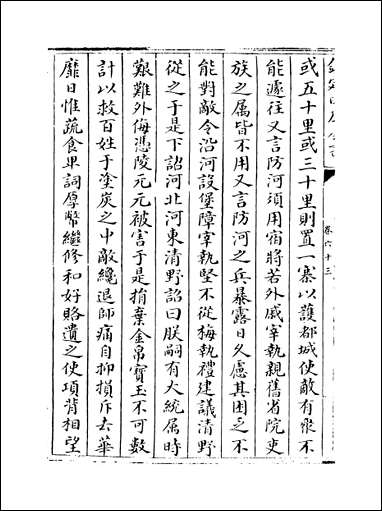 或五十里或三十里則置一寨以護都城使敵有衆不
能遽往又言防河須用宿將若外戚宰執親舊省院吏
族之屬皆不用又言防河之兵暴露日久慮其困乏不
能對敵令沿河設堡障宰執堅不從梅執禮建議清野
從之于是下詔河北河東清野詔曰朕嗣有大統属時
艱難外侮憑陵元元被害于是捐棄金帛寶玉不可數
計以救百姓于塗炭之中敵纔退師痛自抑損斥去華
靡日惟蔬食卑詞厚幣繼修和好賂遺之使項背相望
卷六十三